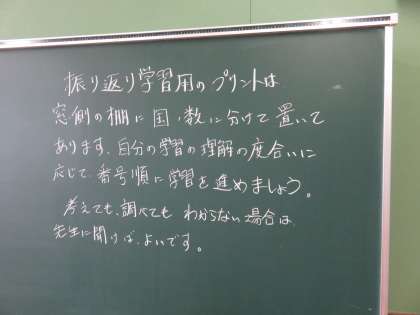 振り返り学習用のプリントは
窓側の棚に国、数に分けて置いて
あります。自分の学習の理解の度合いに
応じて、番号順に学習を進めましょう。
考えても、調べても わからない場合は、
先生に聞けば、よいです。